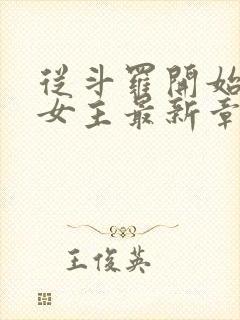 從斗羅開始
女主最新章
王俊英